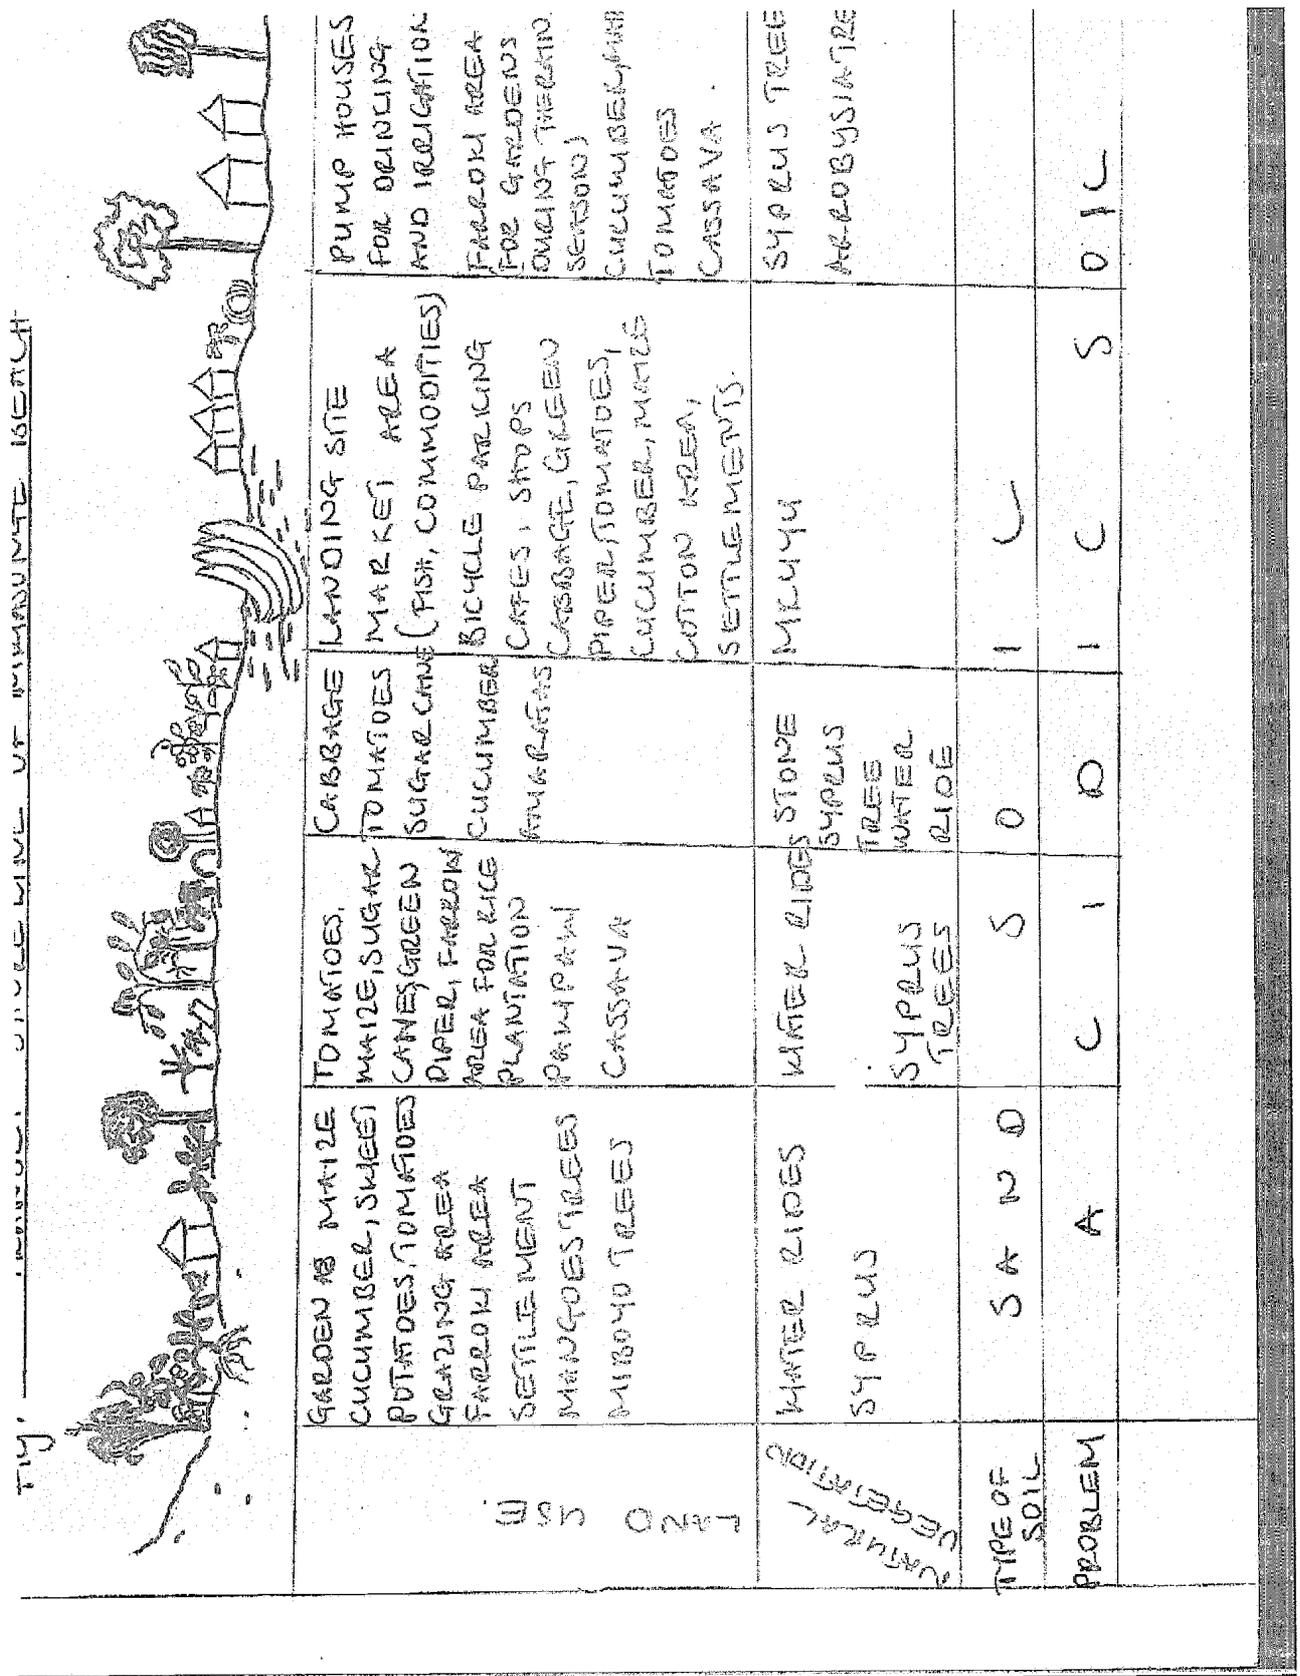 Fig.
GARDEN AS MAIZE
CUCUMBER, SWEET
POTATOES, TOMATOES
GRAZING AREA
FARROW AREA
SETTLEMENT
MANGOES TREES
MIBOYO TREES
TOMATOES,
MAIZE, SUGAR
CANES, GREEN
PIPER, FARROW
AREA FOR RICE
PLANTATION
PAWPAW
CASSAVA
CABBAGE
TOMATOES
SUGARCANE
CUCUMBER
LANDING SITE
MARKET AREA
(FISH, COMMODITIES)
BICYCLE PARKING
CAFES, SHOPS
CABBAGE, GREEN
PIPER, TOMATOES,
CUCUMBER, MAIZE
COTTON AREA,
SETTLEMENTS.
PUMP HOUSES
FOR DRINKING
AND IRRIGATION
FARROW AREA
FOR GARDENS
DURING THE RAIN
SEASON)
CUCUMBER,
TOMATOES
CASSAVA.
LAND
USE.
NATURAL
VEGETATION
WATER RIDES
SYPRUS
WATER RIDES
SYPRUS
TREES
STONE
SYPRUS
TREE
WATER
RIDE
MKUYU
SYPRUS TREE
TYPE OF
SOIL
SAND SOIL
PROBLEM
ACIDIC SOIL